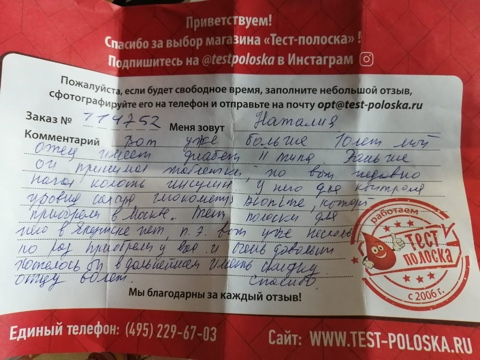 Приветствуем!
Спасибо за выбор магазина «Тест-полоска» !
Подпишитесь на @testpoloska в Инстаграм
Пожалуйста, если будет свободное время, заполните небольшой отзыв,
сфотографируйте его на телефон и отправьте на почту opt@test-poloska.ru
Заказ № 114752 Меня зовут Наталия
Комментарий Вот уже больше 10 лет мой
отец имеет диабет II типа. Раньше
он принимал таблетки, но вот недавно
начал колоть инсулин. У него для контроля
уровня сахара глюкометр Bionime, который
приобрели в Москве. Тест полоски для
него в нет, п.э. вот уже несколько
раз приобретали у вас и очень довольны
Хотелось бы в дальнейшем иметь скидку
отцу Спасибо.
работаем
Тест
полоска
с 2006 г.
Мы благодарны за каждый отзыв!
Единый телефон: (495) 229-67-03
Сайт: WWW.TEST-POLOSKA.RU